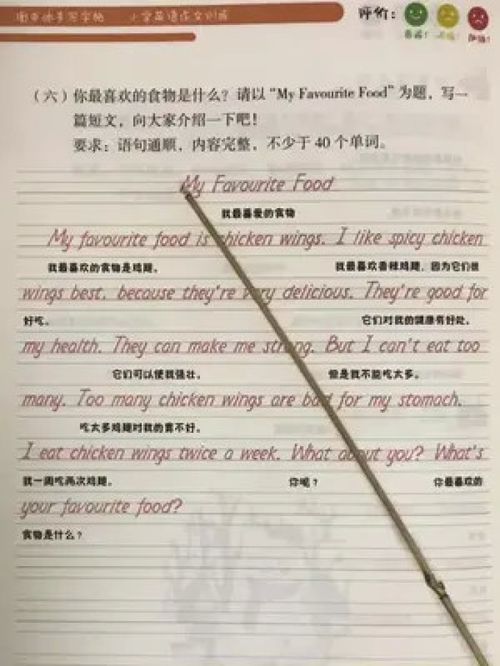 衡中体书写字帖 小学英语作文训练 评价：
（六）你最喜欢的食物是什么？请以“My Favourite Food”为题，写一
篇短文，向大家介绍一下吧！
要求：语句通顺，内容完整，不少于 40 个单词。
My Favourite Food
我最喜爱的食物
My favourite food is chicken wings. I like spicy chicken
我最喜欢的食物是鸡翅。 我最喜欢香辣鸡翅，因为它们很
wings best, because they're very delicious. They're good for
好吃。 它们对我的健康有好处。
my health. They can make me strong. But I can't eat too
它们可以使我强壮。 但是我不能吃太多。
many. Too many chicken wings are bad for my stomach.
吃太多鸡翅对我的胃不好。
I eat chicken wings twice a week. What about you? What's
我一周吃两次鸡翅。 你呢？ 你最喜欢的
your favourite food?
食物是什么？